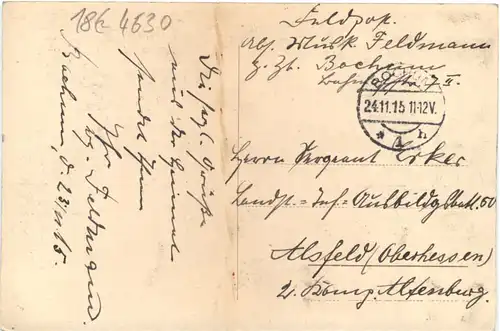 18E 4630
Die hzl. Grüße
aus der Heimat
sendet Ihnen
Ihr
Feldmann.
Bochum, d. 23/11.15.
Feldpost.
Abs. Musk. Feldmann
z. Zt. Bochum
BOCHUM
24.11.15 11-12V.
* 1 h
Herrn Sergeant Erker
Landst.=Inf=Ausbildgsbatl. 50
Alsfeld (Oberhessen)
2. Komp. Altenburg.